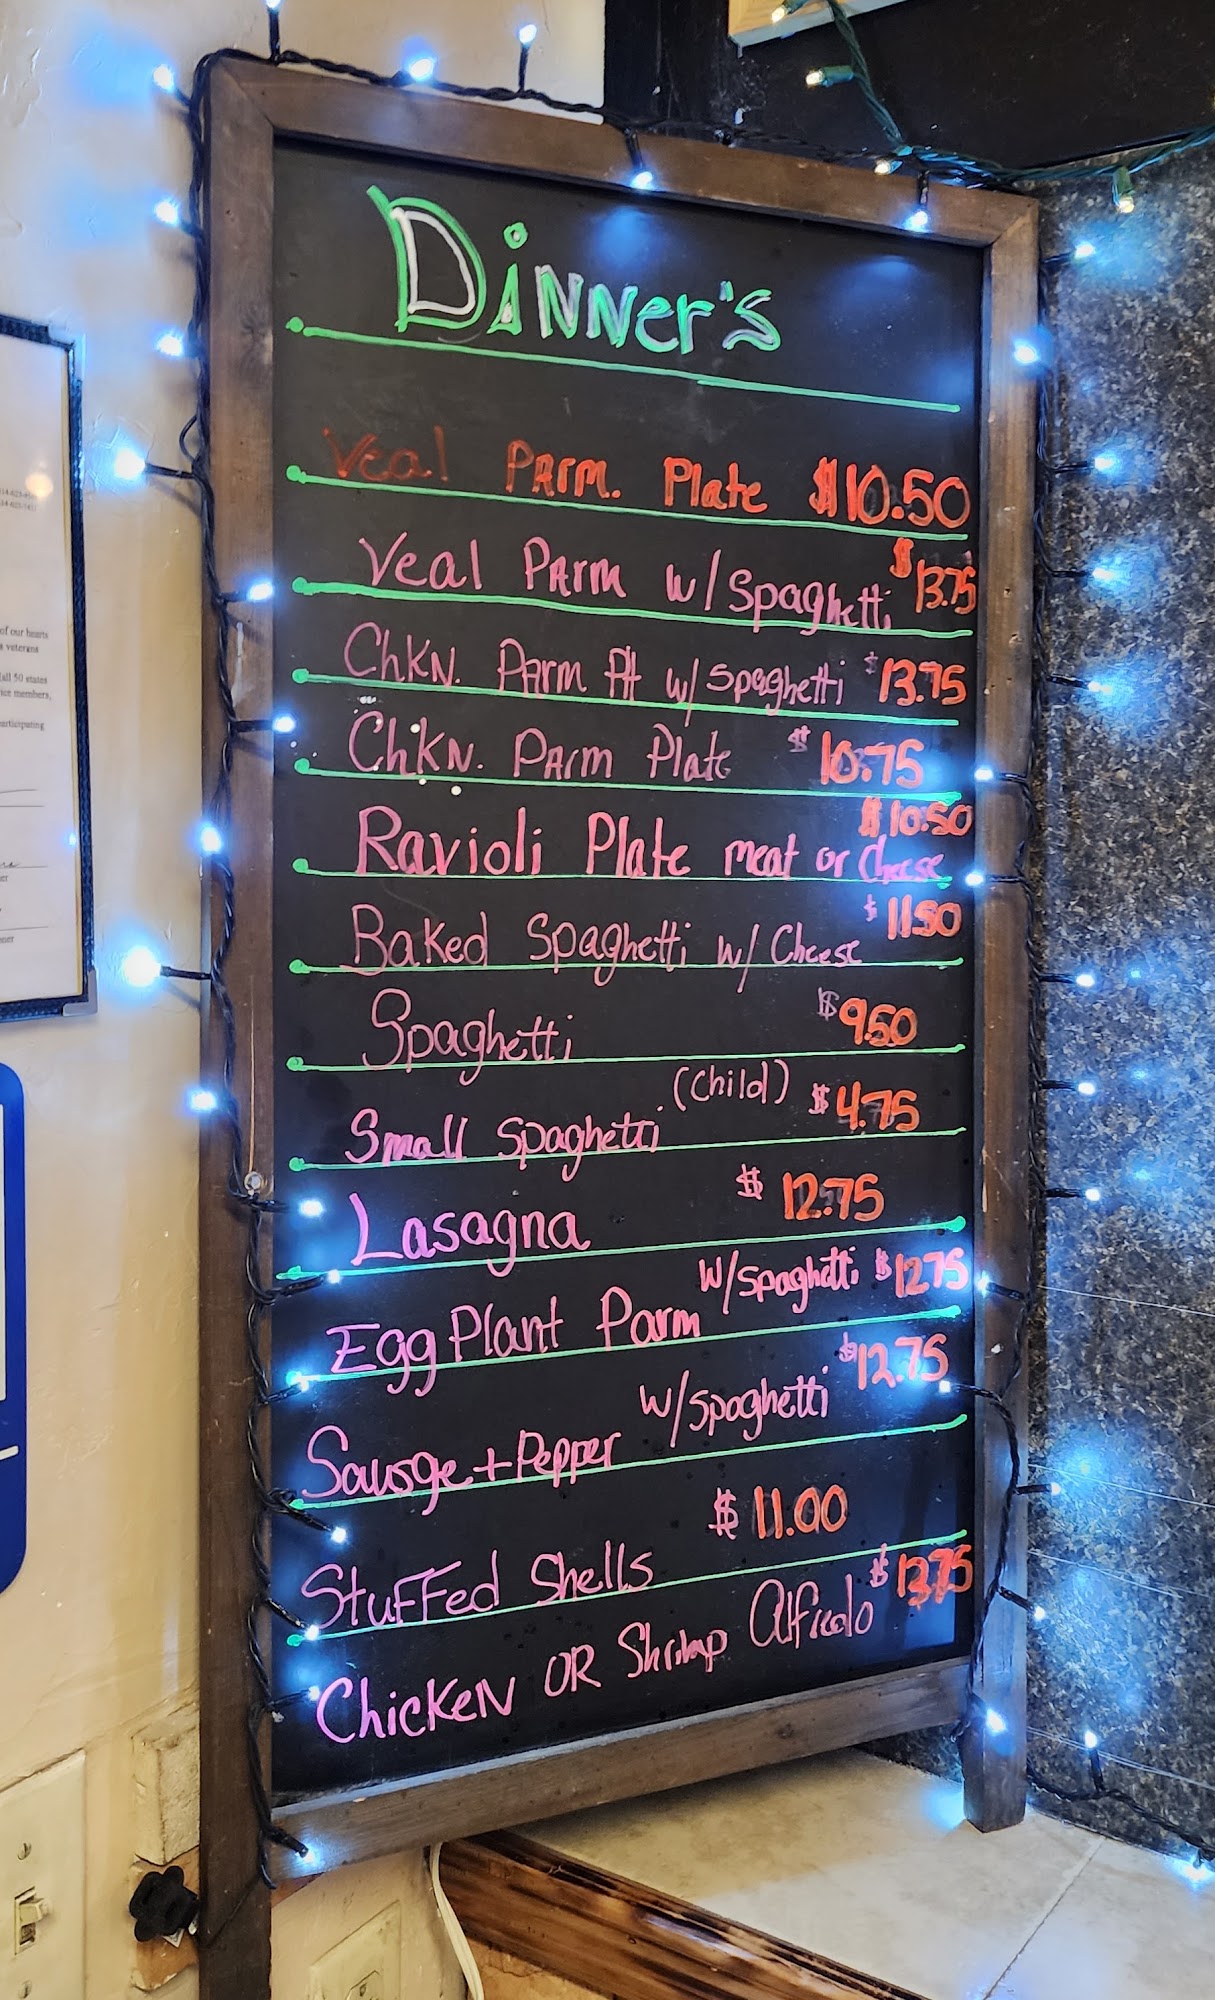 Dinner's
Veal Parm. Plate $10.50
Veal Parm w/ Spaghetti $13.75
Chkn. Parm Plt w/ Spaghetti $13.75
Chkn. Parm Plate $10.75
Ravioli Plate meat or Cheese $10.50
Baked Spaghetti w/ Cheese $11.50
Spaghetti $9.50
Small Spaghetti (Child) $4.75
Lasagna $12.75
EggPlant Parm w/ Spaghetti $12.75
Sausge + Pepper w/ Spaghetti $12.75
Stuffed Shells $11.00
Chicken OR Shrimp Alfredo $13.75
of our hearts
veterans
all 50 states
members,
participating